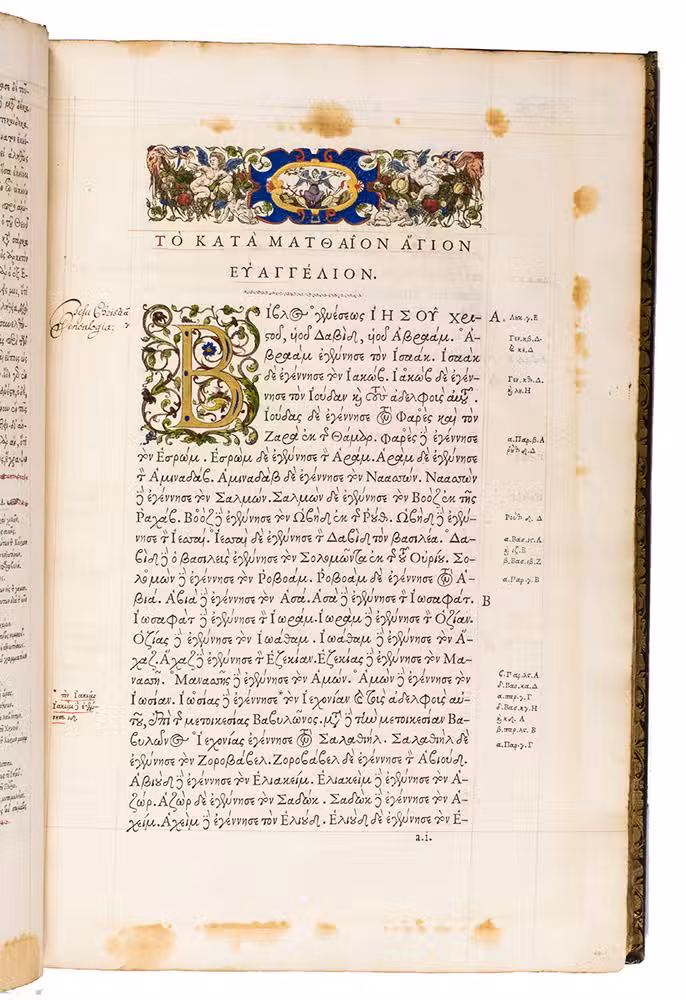 ΤῸ ΚΑΤᾺ ΜΑΤΘΑῖΟΝ ἍΓΙΟΝ
ΕΥ̓ΑΓΓΈΛΙΟΝ.
Jesu Christi
Genealogia;
ΒΊΒΛΟς γενέσεως ἸΗΣΟΥ͂ Χρι-
στοῦ, υἱοῦ Δαβὶδ, υἱοῦ Ἀβραάμ. Ἀ-
βραὰμ ἐγέννησε τὸν Ἰσαάκ. Ἰσαὰκ
δὲ ἐγέννησε τὸν Ἰακώβ. Ἰακὼβ δὲ ἐγέν-
νησε τὸν Ἰούδαν καὶ τοὺς ἀδελφοὺς αὐτοῦ.
Ἰούδας δὲ ἐγέννησε τὸν Φαρὲς καὶ τὸν
Ζαρὰ ἐκ τῆς Θάμαρ. Φαρὲς δὲ ἐγέννησε
τὸν Ἐσρώμ. Ἐσρὼμ δὲ ἐγέννησε τὸν Ἀράμ. Ἀρὰμ δὲ ἐγέννησε
τὸν Ἀμιναδάβ. Ἀμιναδὰβ δὲ ἐγέννησε τὸν Ναασσών. Ναασσὼν
δὲ ἐγέννησε τὸν Σαλμών. Σαλμὼν δὲ ἐγέννησε τὸν Βοὸζ ἐκ τῆς
Ῥαχάβ. Βοὸζ δὲ ἐγέννησε τὸν Ὠβὴδ ἐκ τῆς Ῥούθ. Ὠβὴδ δὲ ἐγέν-
νησε τὸν Ἰεσσαί. Ἰεσσαὶ δὲ ἐγέννησε τὸν Δαβὶδ τὸν βασιλέα. Δα-
βὶδ δὲ ὁ βασιλεὺς ἐγέννησε τὸν Σολομῶντα ἐκ τῆς τοῦ Οὐρίου. Σο-
λομὼν δὲ ἐγέννησε τὸν Ῥοβοάμ. Ῥοβοὰμ δὲ ἐγέννησε τὸν Ἀ-
βιά. Ἀβιὰ δὲ ἐγέννησε τὸν Ἀσά. Ἀσὰ δὲ ἐγέννησε τὸν Ἰωσαφάτ.
Ἰωσαφὰτ δὲ ἐγέννησε τὸν Ἰωράμ. Ἰωρὰμ δὲ ἐγέννησε τὸν Ὀζίαν.
Ὀζίας δὲ ἐγέννησε τὸν Ἰωάθαμ. Ἰωάθαμ δὲ ἐγέννησε τὸν Ἄ-
χαζ. Ἄχαζ δὲ ἐγέννησε τὸν Ἐζεκίαν. Ἐζεκίας δὲ ἐγέννησε τὸν Μα-
νασσῆ. Μανασσῆς δὲ ἐγέννησε τὸν Ἀμών. Ἀμὼν δὲ ἐγέννησε τὸν
Ἰωσίαν. Ἰωσίας δὲ ἐγέννησε τὸν Ἰεχονίαν καὶ τοὺς ἀδελφοὺς αὐ-
τοῦ, ἐπὶ τῆς μετοικεσίας Βαβυλῶνος. μετὰ δὲ τὴν μετοικεσίαν Βα-
βυλῶνος Ἰεχονίας ἐγέννησε τὸν Σαλαθιήλ. Σαλαθιὴλ δὲ
ἐγέννησε τὸν Ζοροβάβελ. Ζοροβάβελ δὲ ἐγέννησε τὸν Ἀβιούδ.
Ἀβιοὺδ δὲ ἐγέννησε τὸν Ἐλιακείμ. Ἐλιακεὶμ δὲ ἐγέννησε τὸν Ἀ-
ζώρ. Ἀζὼρ δὲ ἐγέννησε τὸν Σαδώκ. Σαδὼκ δὲ ἐγέννησε τὸν Ἀ-
χείμ. Ἀχεὶμ δὲ ἐγέννησε τὸν Ἐλιούδ. Ἐλιοὺδ δὲ ἐγέννησε τὸν Ἐ-
a.i.
τὸν Ἰακείμ.
Ἰακεὶμ δὲ ἐγέν-
Α.
Β
Λυκ.γ.Ε
Γεν.κβ.Δ
& κε.Δ
Γεν.κθ.Δ.
& λε.Η
α.Παρ.β.Α
ρουθ.δ.Δ
Ρουθ δ. Δ
α.Βασ.ις.Α
& ιζ.Β
β.Βασ.ιβ.Ζ
α.Παρ.γ.Β
δ.Βασ.κα.Δ
α.παρ.γ.Γ
δ.Βασ.κγ.Η
& κδ. Α
β.παρ.λς.Β
α.Παρ.γ.Γ